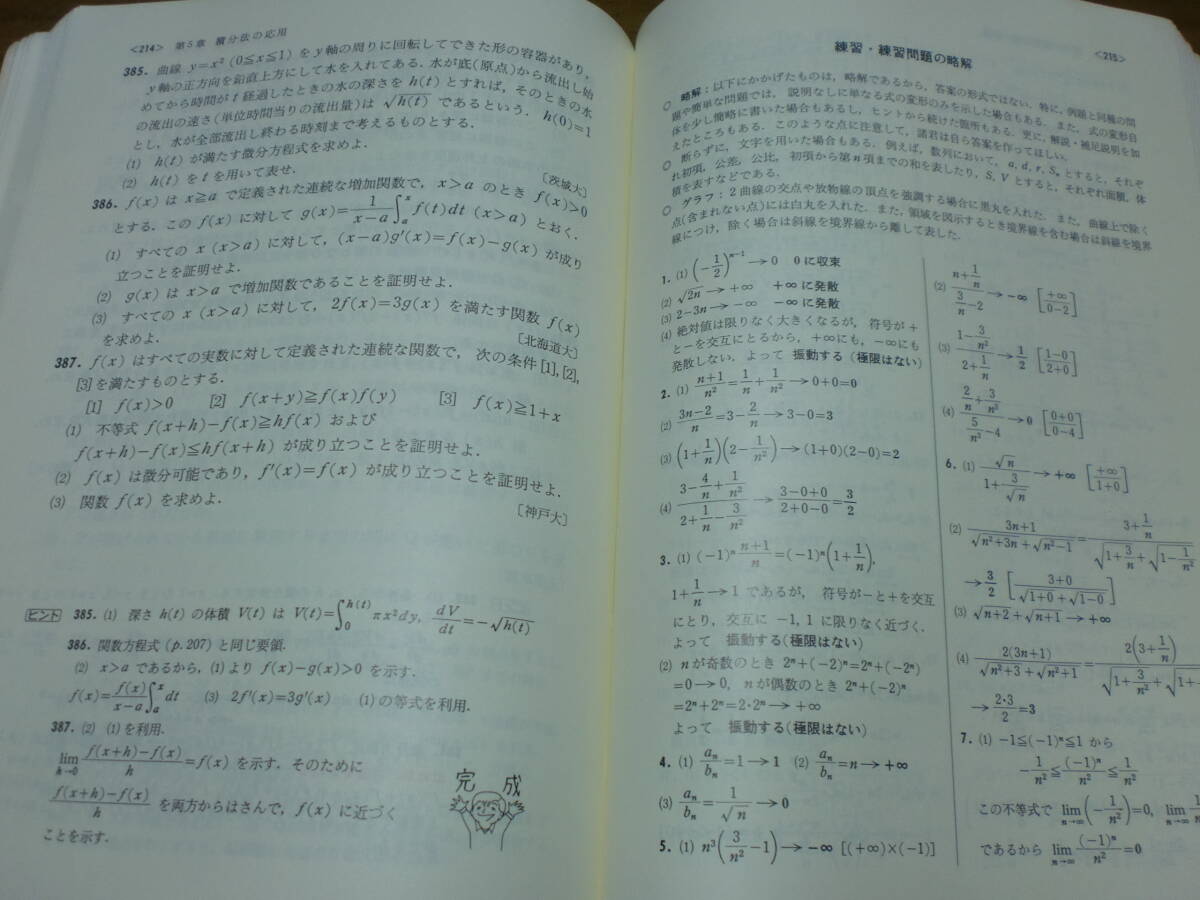 <214> 第5章 積分法の応用
385. 曲線 y=x² (0≦x≦1) をy軸の周りに回転してできた形の容器があり,
y軸の正方向を鉛直上方にして水を入れてある. 水が底(原点)から流出し始
めてから時間がt経過したときの水の深さをh(t)とすれば, そのときの水
の流出の速さ(単位時間当りの流出量)は √h(t) であるという. h(0)=1
とし, 水が全部流出し終わる時刻まで考えるものとする.
(1) h(t)が満たす微分方程式を求めよ.
(2) h(t)をtを用いて表せ. 〔茨城大〕
386. f(x) は x≧a で定義された連続な増加関数で, x>a のとき f(x)>0
とする. この f(x) に対して g(x)=1/(x-a)∫_a^x f(t)dt (x>a) とおく.
(1) すべての x (x>a) に対して, (x-a)g'(x)=f(x)-g(x) が成り
立つことを証明せよ.
(2) g(x) は x>a で増加関数であることを証明せよ.
(3) すべての x (x>a) に対して, 2f(x)=3g(x) を満たす関数 f(x)
を求めよ. 〔北海道大〕
387. f(x) はすべての実数に対して定義された連続な関数で, 次の条件 [1], [2],
[3]を満たすものとする.
[1] f(x)>0 [2] f(x+y)≧f(x)f(y) [3] f(x)≧1+x
(1) 不等式 f(x+h)-f(x)≧hf(x) および
f(x+h)-f(x)≦hf(x+h) が成り立つことを証明せよ.
(2) f(x) は微分可能であり, f'(x)=f(x) が成り立つことを証明せよ.
(3) 関数 f(x) を求めよ. 〔神戸大〕
ヒント 385. (1) 深さ h(t) の体積 V(t) は V(t)=∫_0^{h(t)} πx²dy, dV/dt=-√h(t)
386. 関数方程式 (p.207) と同じ要領.
(2) x>a であるから, (1)より f(x)-g(x)>0 を示す.
f(x)=f(x)/(x-a)∫_a^x dt (3) 2f'(x)=3g'(x) (1)の等式を利用.
387. (2) (1)を利用.
lim_{h→0} (f(x+h)-f(x))/h=f(x) を示す. そのために
(f(x+h)-f(x))/h を両方からはさんで, f(x) に近づく
ことを示す.
完 成
練習・練習問題の略解 <215>
○ 略解:以下にかかげたものは, 略解であるから, 答案の形式ではない. 特に, 例題と同種の問
題や簡単な問題では, 説明なしに単なる式の変形のみを示した場合もある. また, 式の変形自
体を少し簡略に書いた場合もあるし, ヒントから続けた箇所もある. 更に, 解説・補足説明を加
えたところもある. このような点に注意して, 諸君は自ら答案を作ってほしい.
○ 断らずに, 文字を用いた場合もある. 例えば, 数列において, a, d, r, Sₙ とすると, それぞ
れ初項, 公差, 公比, 初項から第n項までの和を表したり, S, V とすると, それぞれ面積, 体
積を表すなどである.
○ グラフ:2曲線の交点や放物線の頂点を強調する場合に黒丸を入れた. また, 曲線上で除く
点(含まれない点)には白丸を入れた. また, 領域を図示するとき境界線を含む場合は斜線を境界
線につけ, 除く場合は斜線を境界線から離して表した.
1. (1) (-1/2)^{n-1}→0 0に収束
(2) √2n→+∞ +∞に発散
(3) 2-3n→-∞ -∞に発散
(4) 絶対値は限りなく大きくなるが, 符号が+
と-を交互にとるから, +∞にも, -∞にも
発散しない. よって 振動する (極限はない)
2. (1) (n+1)/n²=1/n+1/n²→0+0=0
(2) (3n-2)/n=3-2/n→3-0=3
(3) (1+1/n)(2-1/n²)→(1+0)(2-0)=2
(4) (3-4/n+1/n²)/(2+1/n-3/n²)→(3-0+0)/(2+0-0)=3/2
3. (1) (-1)ⁿ(n+1)/n=(-1)ⁿ(1+1/n),
1+1/n→1 であるが, 符号が-と+を交互
にとり, 交互に -1, 1 に限りなく近づく.
よって 振動する(極限はない)
(2) nが奇数のとき 2ⁿ+(-2)ⁿ=2ⁿ+(-2ⁿ)
=0→0, nが偶数のとき 2ⁿ+(-2)ⁿ
=2ⁿ+2ⁿ=2・2ⁿ→+∞
よって 振動する(極限はない)
4. (1) aₙ/bₙ=1→1 (2) aₙ/bₙ=n→+∞
(3) aₙ/bₙ=1/√n→0
5. (1) n³(3/n²-1)→-∞ [(+∞)×(-1)]
(2) (n+1/n)/(3/n-2)→-∞ [+∞/(0-2)]
(3) (1-3/n²)/(2+1/n)→1/2 [(1-0)/(2+0)]
(4) (2/n+3/n²)/(5/n²-4)→0 [(0+0)/(0-4)]
6. (1) √n/(1+3/√n)→+∞ [+∞/(1+0)]
(2) (3n+1)/(√(n²+3n)+√(n²-1))=(3+1/n)/(√(1+3/n)+√(1-1/n²))
→3/2 [(3+0)/(√(1+0)+√(1-0))]
(3) √(n+2)+√(n+1)→+∞
(4) 2(3n+1)/(√(n²+3)+√(n²+1))=2(3+1/n)/(√(1+3/n²)+√(1+
→2・3/2=3
7. (1) -1≦(-1)ⁿ≦1 から
-1/n²≦(-1)ⁿ/n²≦1/n²
この不等式で lim_{n→∞}(-1/n²)=0, lim_{n→∞}
であるから lim_{n→∞}(-1)ⁿ/n²=0